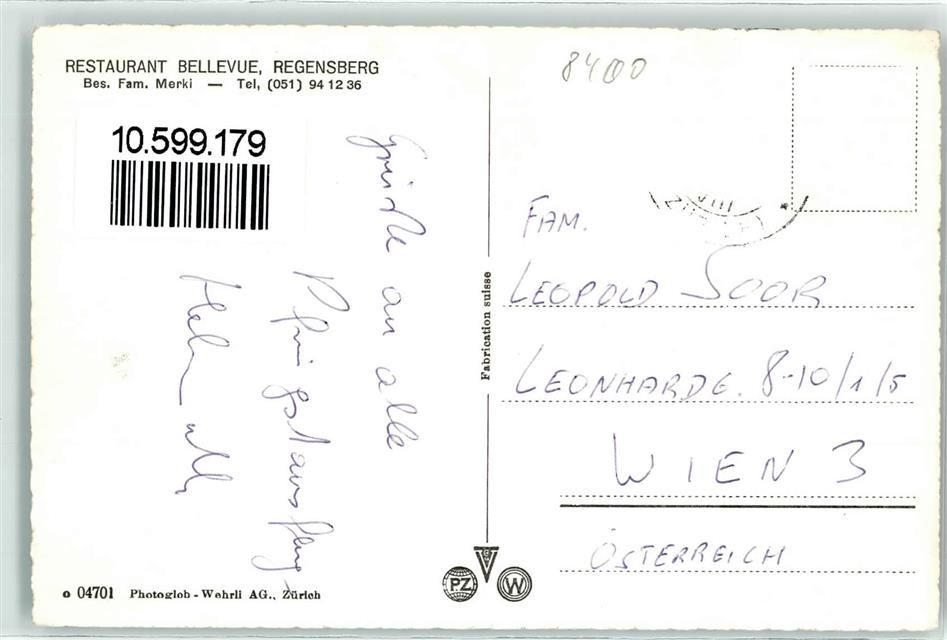 RESTAURANT BELLEVUE, REGENSBERG
Bes. Fam. Merki — Tel, (051) 94 12 36
10.599.179
8400
Grüße an alle
Pfingstausflug
VIII
FAM.
LEOPOLD SOOR
LEONHARDG. 8-10/1/5
WIEN 3
ÖSTERREICH
Fabrication suisse
PZ
W
o 04701 Photoglob - Wehrli AG., Zürich